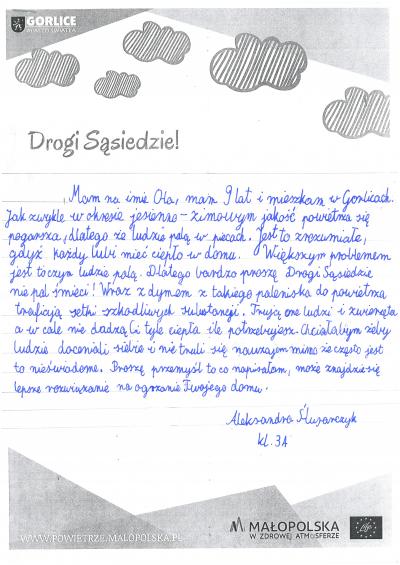 GORLICE
MIASTO ŚWIATŁA
Drogi Sąsiedzie!
Mam na imię Ola, mam 9 lat i mieszkam w Gorlicach.
Jak zwykle w okresie jesienno-zimowym jakość powietrza się
pogarsza, dlatego że ludzie palą w piecach. Jest to zrozumiałe,
gdyż każdy lubi mieć ciepło w domu. Większym problemem
jest to czym ludzie palą. Dlatego bardzo proszę Drogi Sąsiedzie
nie pal śmieci! Wraz z dymem z takiego paleniska do powietrza
trafiają setki szkodliwych substancji. Trują one ludzi i zwierzęta
a w cale nie dadzą Ci tyle ciepła ile potrzebujesz. Chciałabym żeby
ludzie doceniali siebie i nie truli się nawzajem mimo że często jest
to nieświadome. Proszę przemyśl to co napisałam, może znajdzie się
lepsze rozwiązanie na ogrzanie Twojego domu.
Aleksandra Ślusarczyk
kl. 3A
WWW.POWIETRZE.MALOPOLSKA.PL
MAŁOPOLSKA
W ZDROWEJ ATMOSFERZE
Life